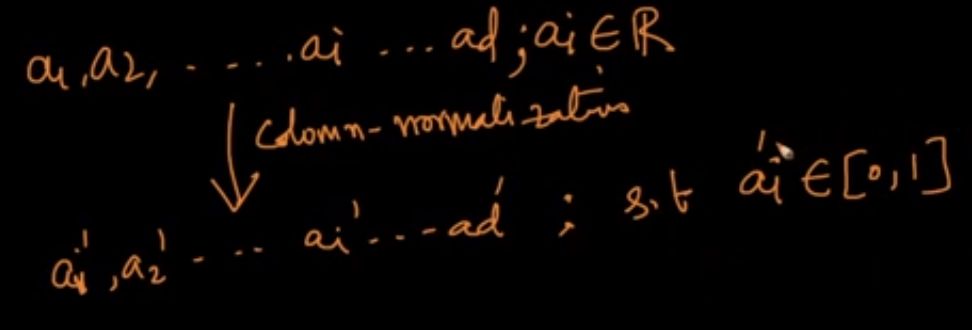 a1, a2, ..... ai ... ad ; ai ∈ R
Column-normalization
a1', a2' ..... ai' ... ad' ; s.t ai' ∈ [0,1]